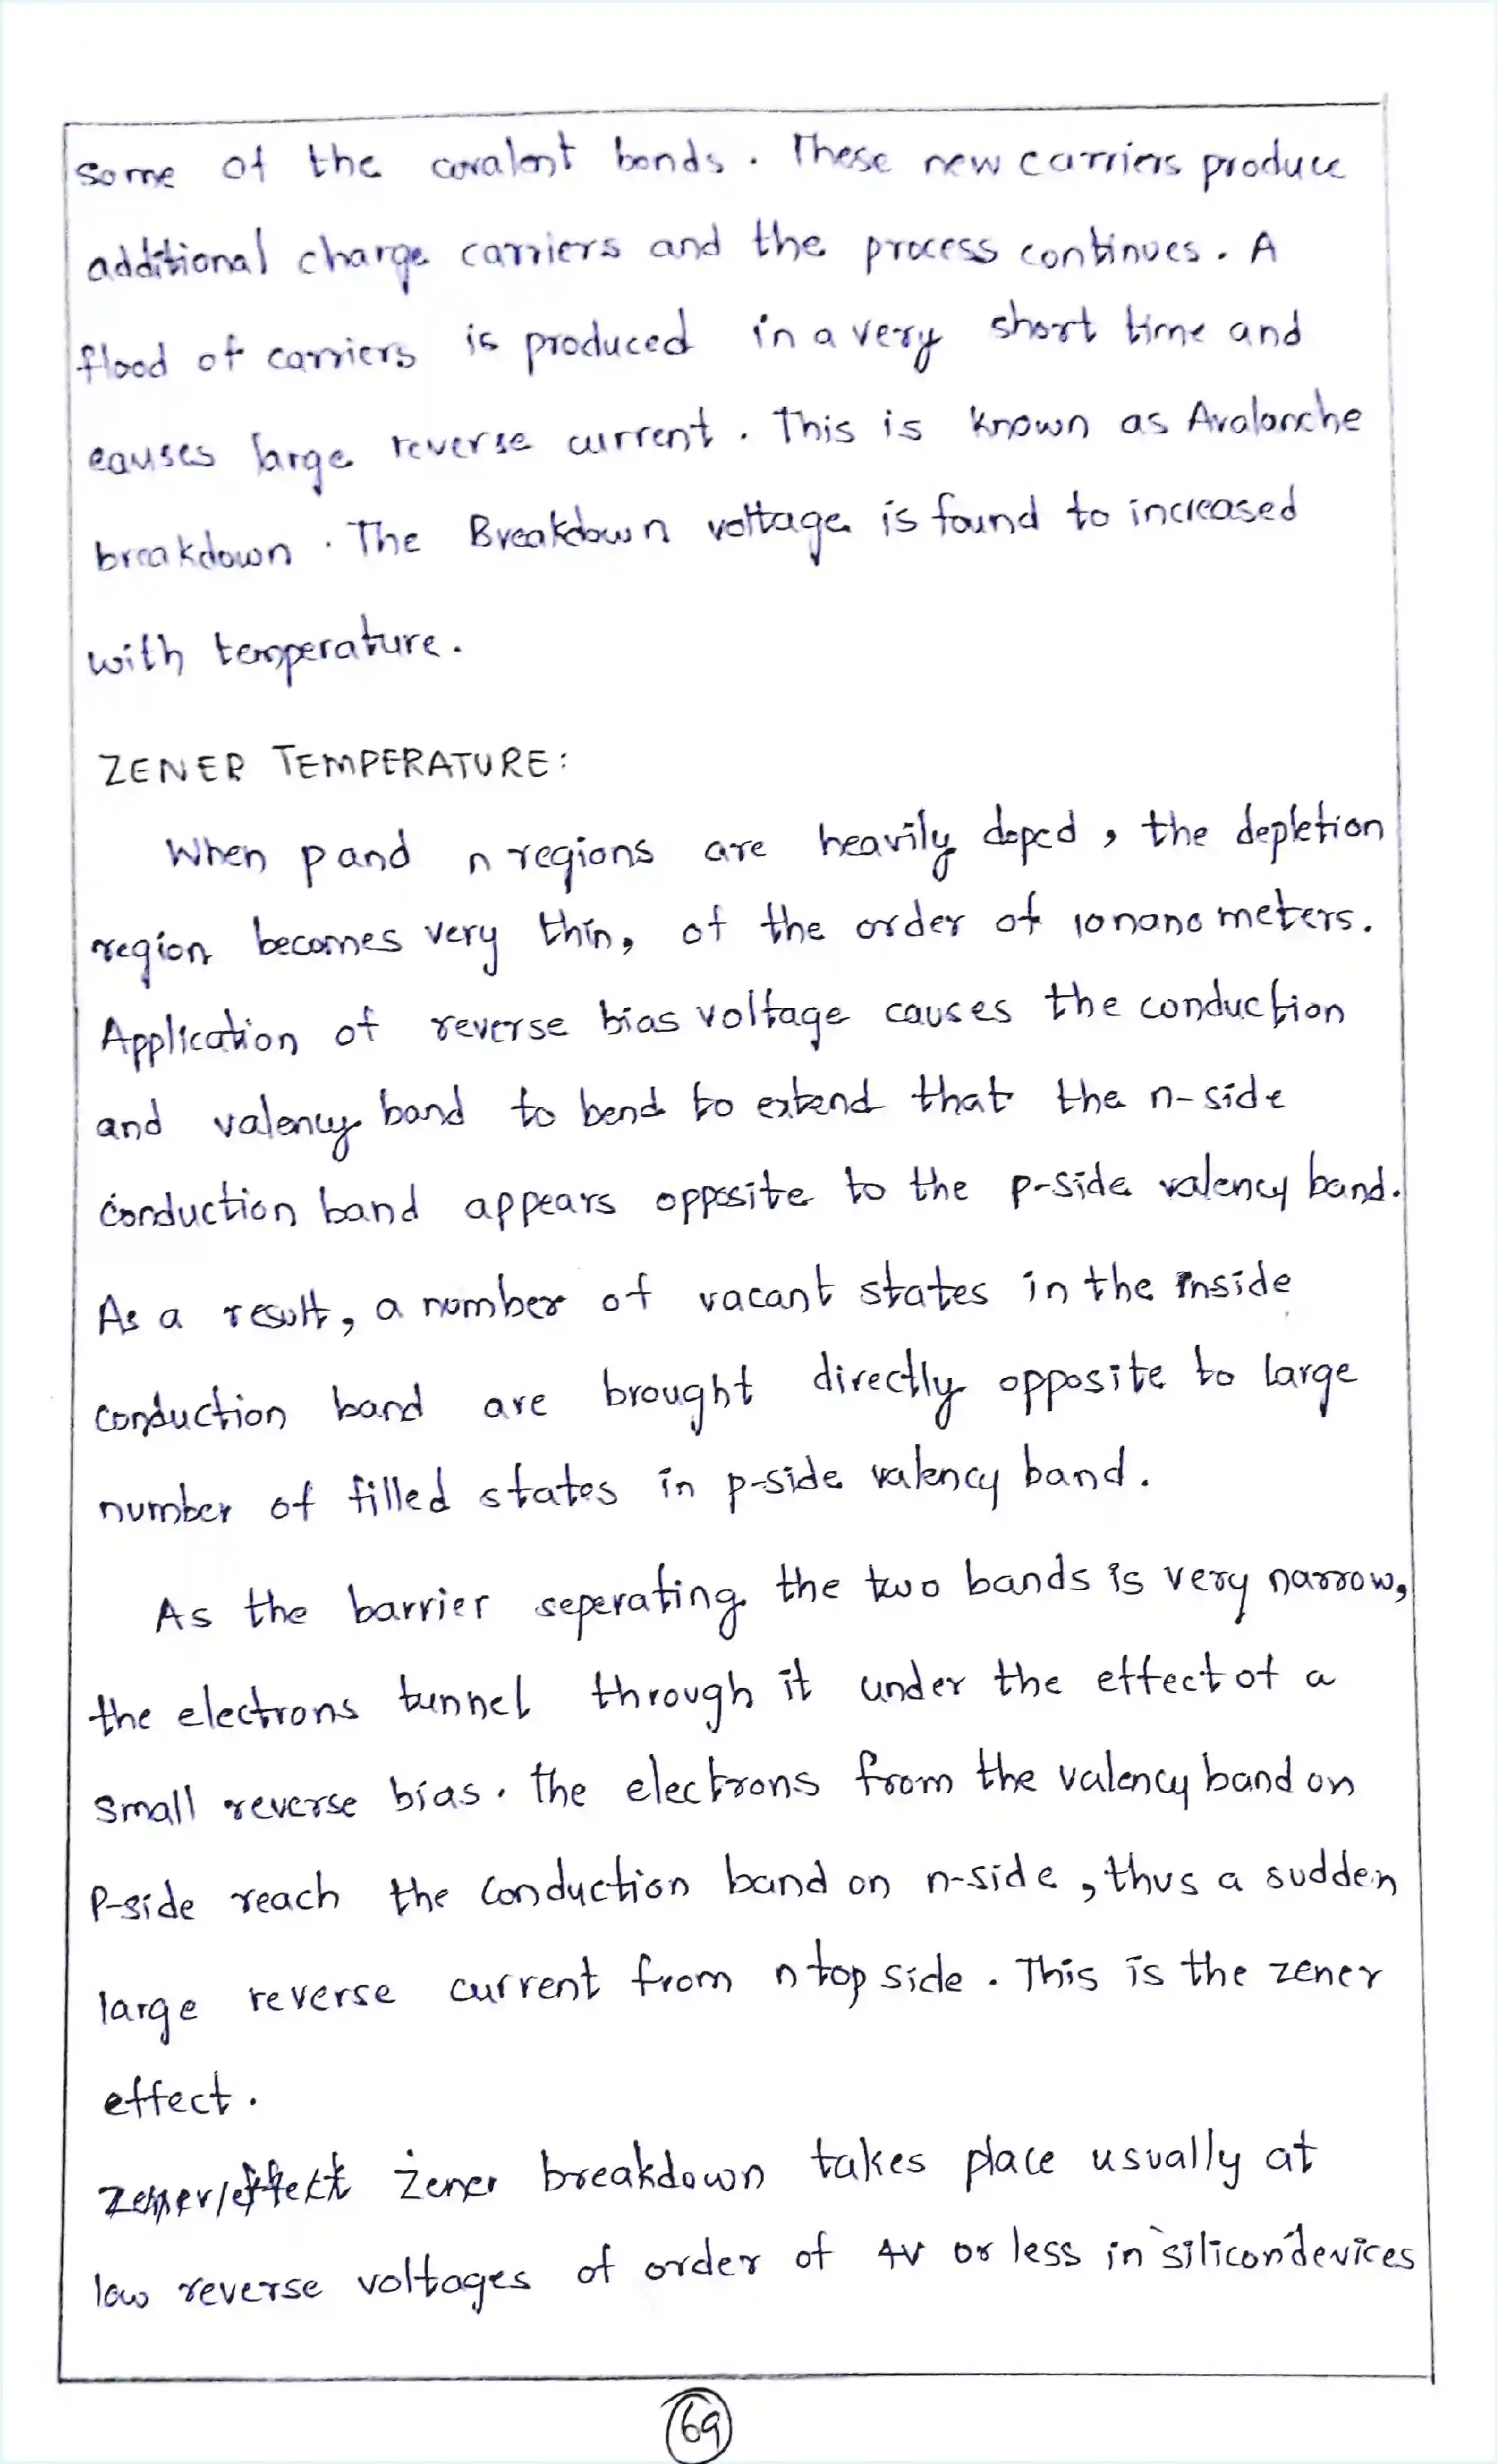 some of the covalent bonds. These new carriers produce
additional charge carriers and the process continues. A
flood of carriers is produced in a very short time and
causes large reverse current. This is known as Avalanche
breakdown. The Breakdown voltage is found to increased
with temperature.
ZENER TEMPERATURE:
When p and n regions are heavily doped, the depletion
region becomes very thin, of the order of 10 nano meters.
Application of reverse bias voltage causes the conduction
and valency band to bend to extend that the n-side
conduction band appears opposite to the p-side valency band.
As a result, a number of vacant states in the inside
conduction band are brought directly opposite to large
number of filled states in p-side valency band.
As the barrier seperating the two bands is very narrow,
the electrons tunnel through it under the effect of a
small reverse bias. the electrons from the valency band on
P-side reach the conduction band on n-side, thus a sudden
large reverse current from n to p side. This is the zener
effect.
Zener breakdown takes place usually at
low reverse voltages of order of 4V or less in silicon devices
69